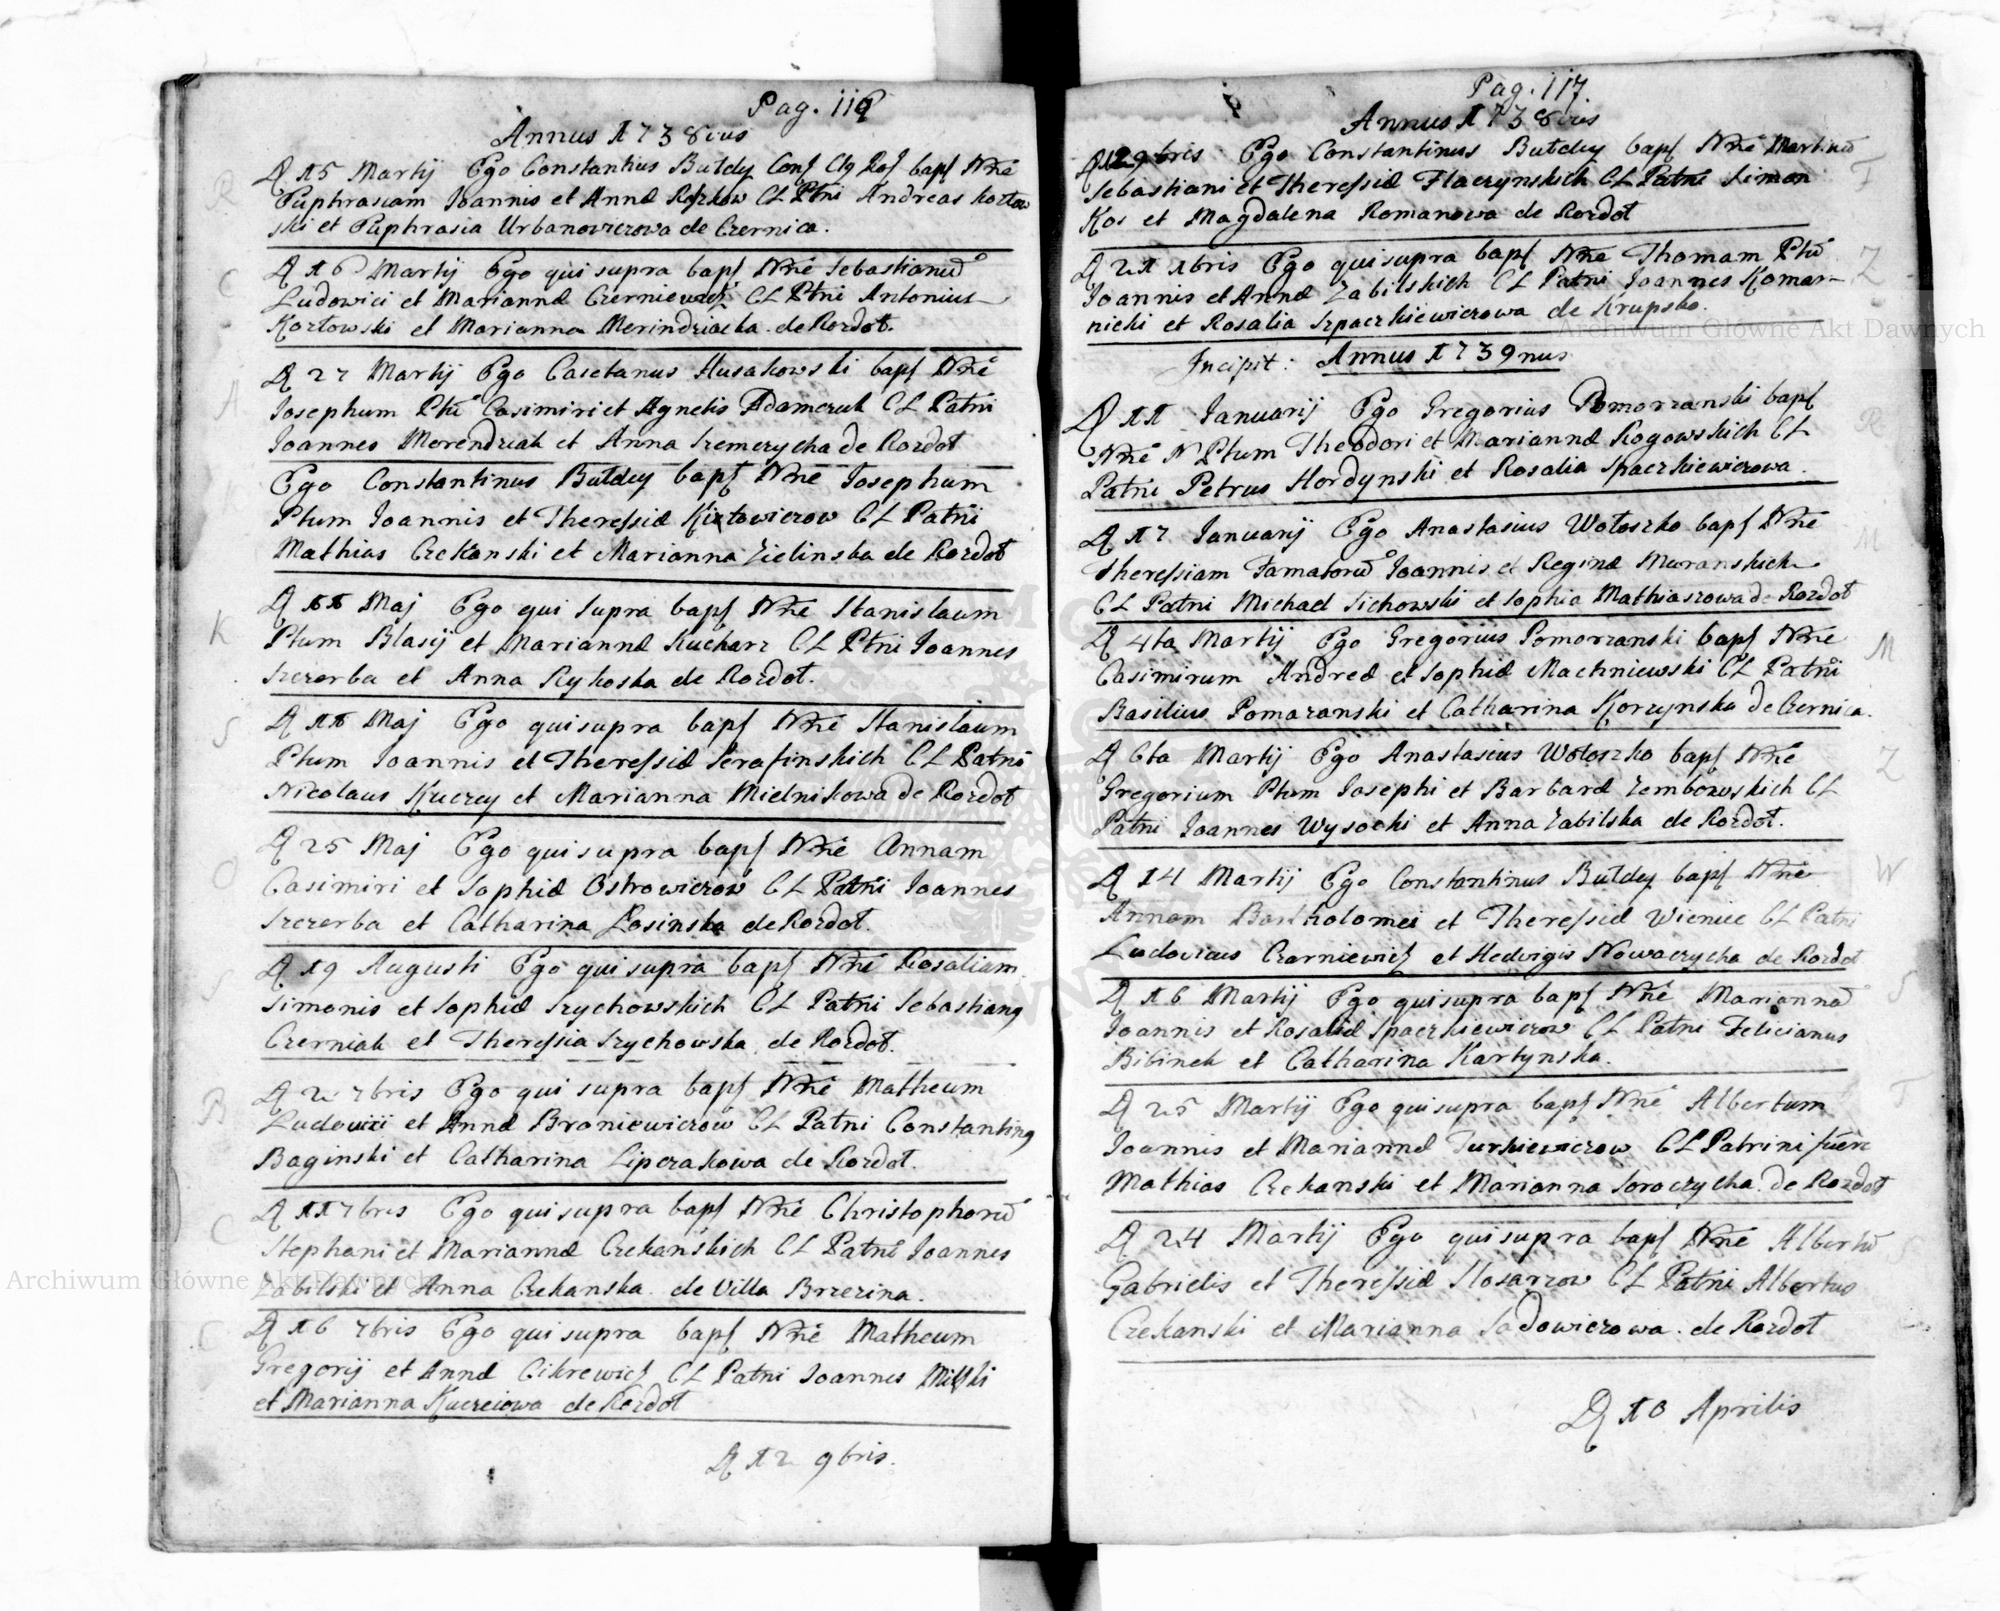 Pag. 116
Annus 1738vus
D 15 Martij Ego Constantius Bułdey Conf Clg Roz bapt Nne
Euphrasiam Joannis et Annæ Rozkow CL Ptni Andreas Kozłow
ski et Euphrasia Urbanowiczowa de Czernica.
D 16 Martij Ego qui supra bapt Nne Sebastianū
Ludowici et Mariannæ Czerniewicz CL Ptni Antonius
Kozłowski et Marianna Merindziacka de Rozdoł.
D 27 Martij Ego Caietanus Husakowski bapt Nne
Josephum Ptū Casimiri et Agnetis Adamczuk CL Patni
Joannes Merendziak et Anna Szemerycha de Rozdoł
Ego Constantinus Bułdey bapt Nne Josephum
Ptum Joannis et Theressiæ CL Patni
Mathias Czekanski et Marianna Zielinska de Rozdoł
D 11 Maj Ego qui supra bapt Nne Stanislaum
Ptum Blasij et Mariannæ Kucharz CL Ptni Joannes
Szczerba et Anna Rykoska de Rozdoł.
D 11 Maj Ego qui supra bapt Nne Stanislaum
Ptum Joannis et Theressiæ Serafinskich CL Patni
Nicolaus Kuczey et Marianna Mielnikowa de Rozdoł
D 25 Maj Ego qui supra bapt Nne Annam
Casimiri et Sophiæ Ostrowiczow CL Patni Joannes
Szczerba et Catharina Łosinska de Rozdoł.
D 19 Augusti Ego qui supra bapt Nne Rosaliam
Simonis et Sophiæ Szychowskich CL Patni Sebastiang
Czerniak et Theressia Szychowska de Rozdoł.
D 2 7bris Ego qui supra bapt Nne Matheum
Ludowici et Annæ Broniewiczow CL Patni Constanting
Baginski et Catharina Lipczakowa de Rozdoł.
D 11 7bris Ego qui supra bapt Nne Christophorū
Stephani et Mariannæ Czekanskich CL Patni Joannes
Zabilski et Anna Czekanska de Villa Brzezina.
D 16 7bris Ego qui supra bapt Nne Matheum
Gregorij et Annæ Cikrewicz CL Patni Joannes
et Marianna Kuczeiowa de Rozdoł
D 12 9bris.
Pag. 117.
Annus 1738vus
D 12 9bris Ego Constantinus Bułdey bapt Nne Martinū
Sebastiani et Theressiæ Flaczynskich CL Patni Simon
Kos et Magdalena Romanowa de Rozdoł
D 21 xbris Ego qui supra bapt Nne Thomam Ptū
Joannis et Annæ Zabilskich CL Patni Joannes Komar-
nicki et Rosalia Szpaczkiewiczowa de Krupsko.
Incipit: Annus 1739nus
D 11 Januarij Ego Gregorius Pomorzanski bapt
Nne N Ptum Theodori et Mariannæ Rogowskich CL
Patni Petrus Hordynski et Rosalia Spaczkiewiczowa.
D 17 Januarij Ego Anastasius Wołoszko bapt Nne
Theressiam Famatorū Joannis et Reginæ Muranskich
CL Patni Michael Sichowski et Sophia Mathiaszowa de Rozdoł
D 4ta Martij Ego Gregorius Pomorzanski bapt Nne
Casimirum Andreæ et Sophiæ Machniewski CL Patni
Basilius Pomazanski et Catharina Korzynska de Czernica.
D 6ta Martij Ego Anastasius Wołoszko bapt Nne
Gregorium Ptum Josephi et Barbaræ Zembowskich CL
Patni Joannes Wysocki et Anna Zabilska de Rozdoł.
D 14 Martij Ego Constantinus Bułdey bapt Nne
Annam Bartholomei et Theressiæ Wieniec CL Patni
Ludovicus Czarniewicz et Hedvigis Nowaczycha de Rozdoł
D 16 Martij Ego qui supra bapt Nne Mariannā
Joannis et Rosaliæ Spaczkiewiczow CL Patni Felicianus
Bibinek et Catharina Kartynska.
D 25 Martij Ego qui supra bapt Nne Albertum
Joannis et Mariannæ Turkiewiczow CL Patrini fuere
Mathias Czekanski et Marianna Soroczycha de Rozdoł
D 24 Martij Ego qui supra bapt Nne Albertū
Gabrielis et Theressiæ Slosarzow CL Patni Albertus
Czekanski et Marianna Sadowiczowa de Rozdoł
D 10 Aprilis
Archiwum Główne Akt Dawnych
Archiwum Główne Akt Dawnych